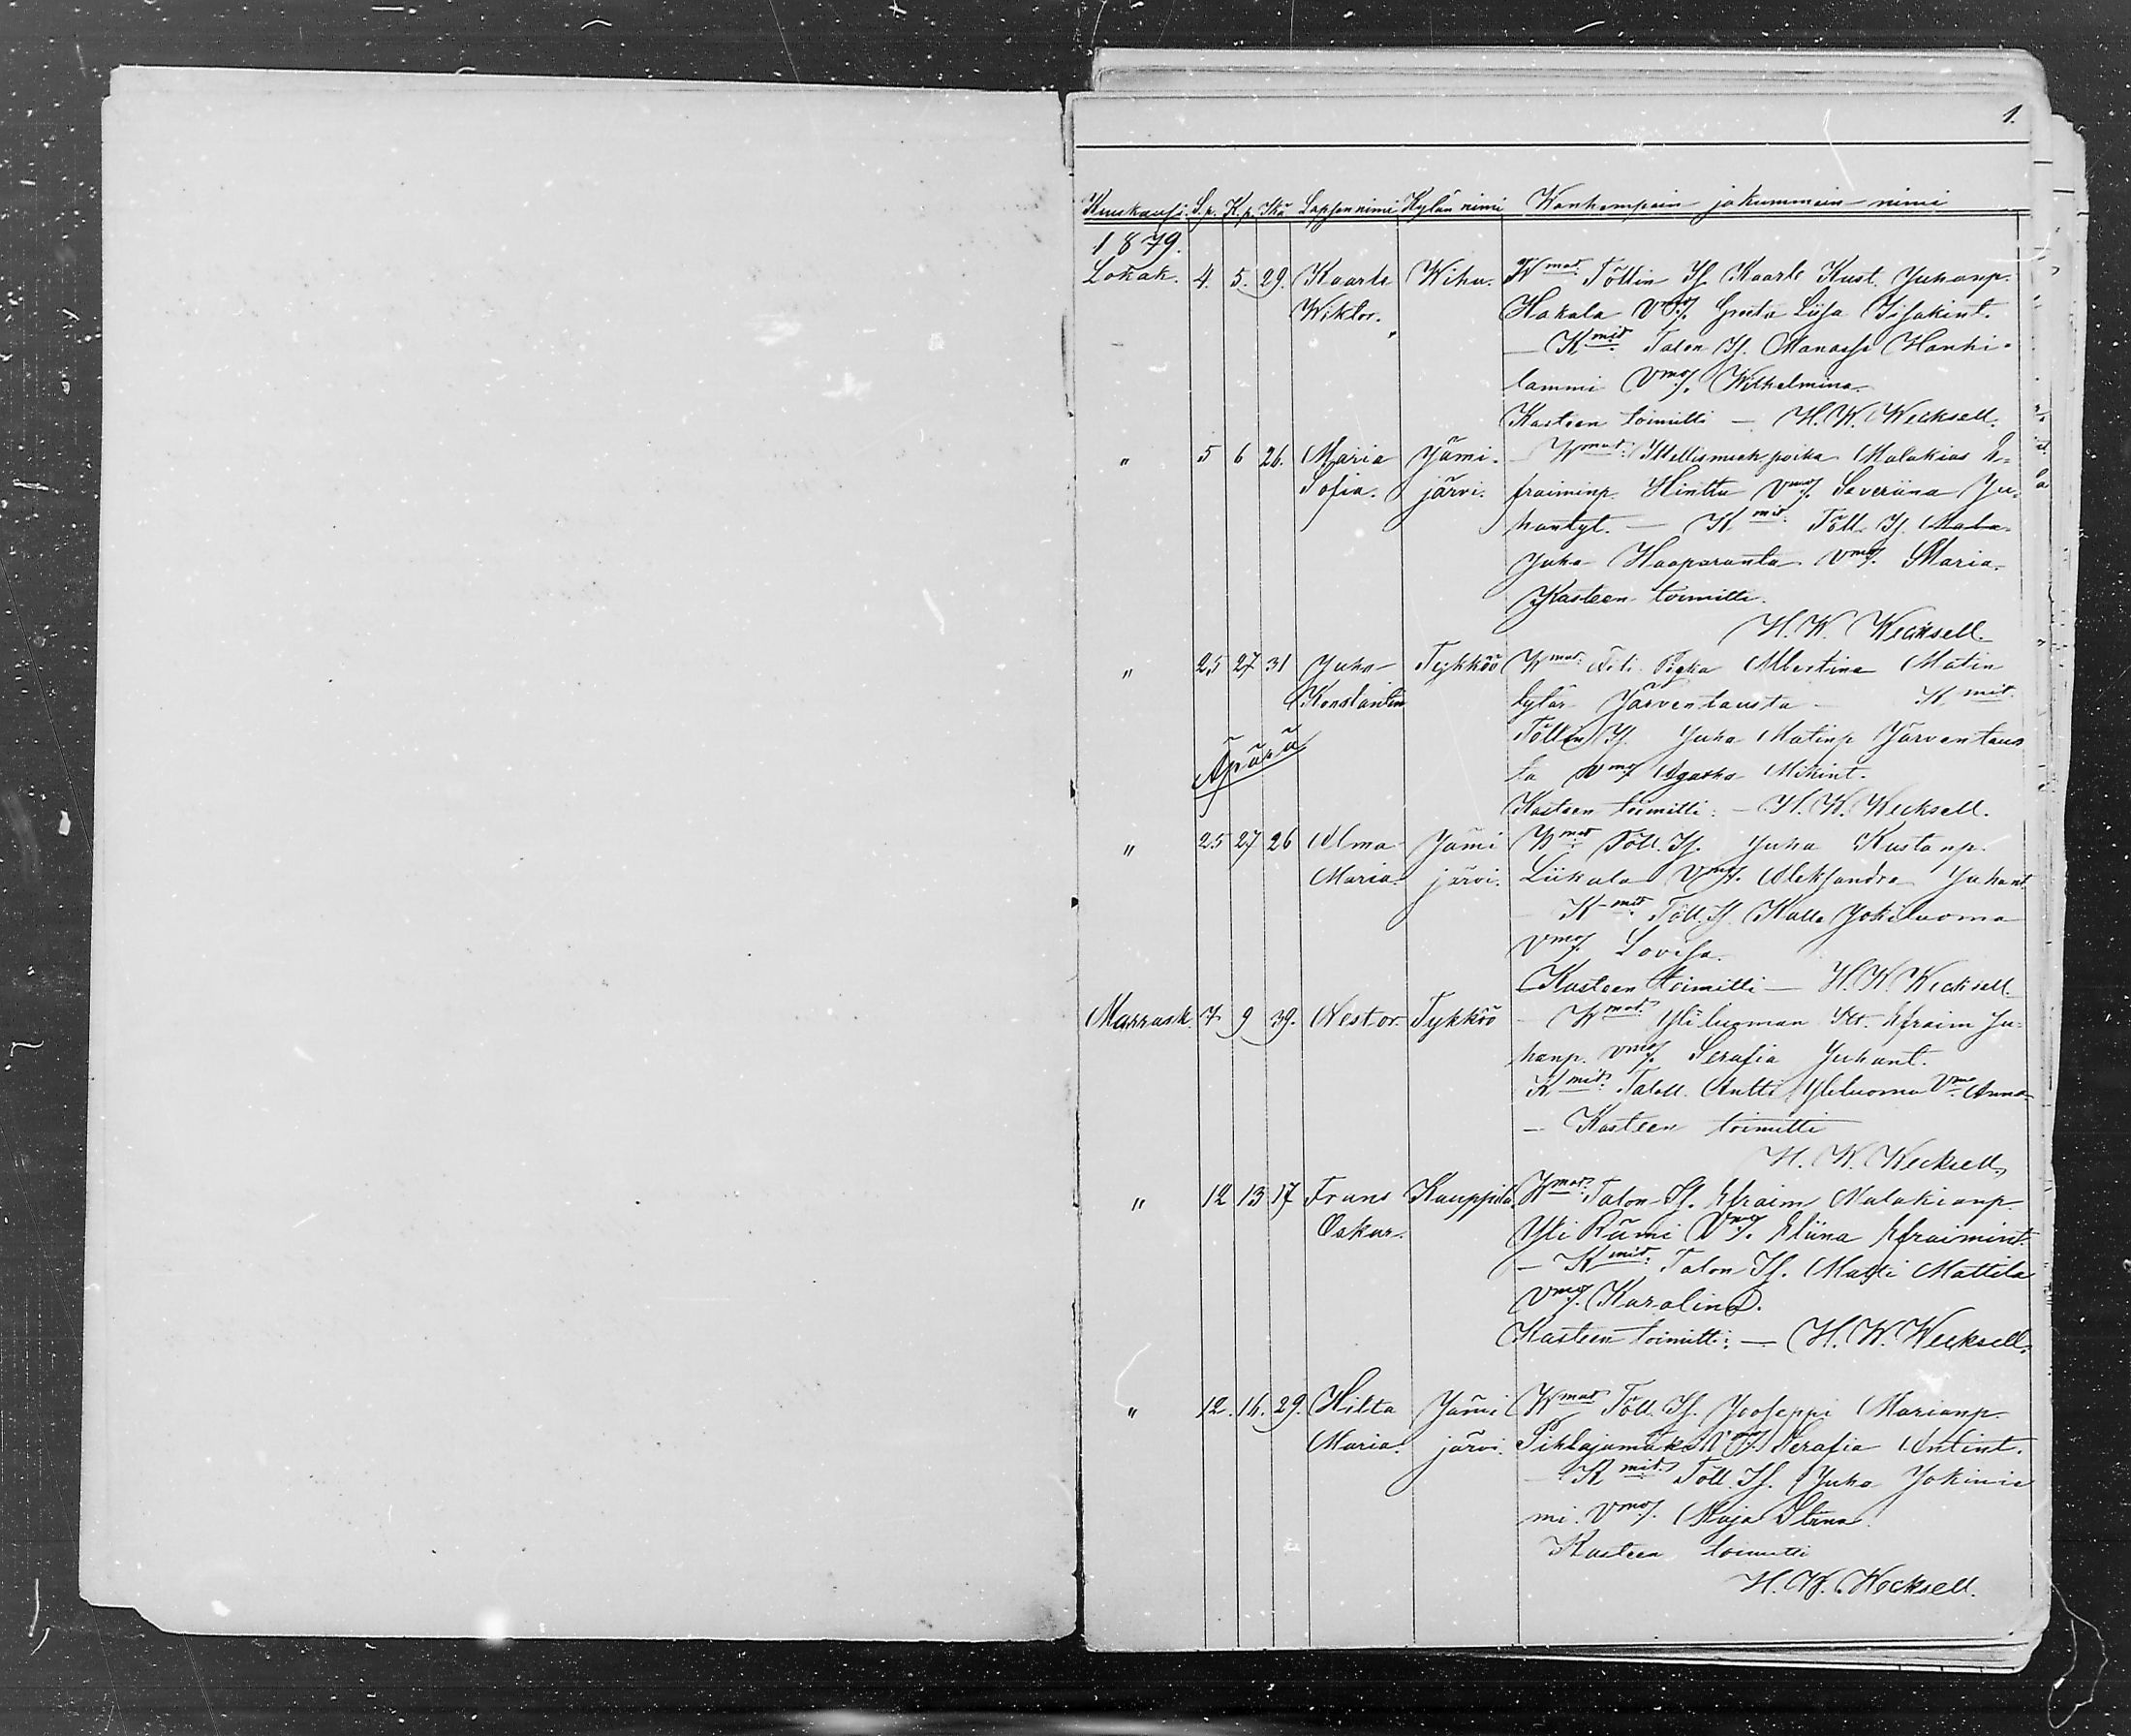 1.
Kuukausi. S.p. K.p. Ikä Lapsen nimi Kylän nimi Wanhempain ja kummein nimi
1879.
Lokak. 4. 5. 29. Kaarle Wihu. Wmat Töllin Is. Kaarle Kust. Juhanp.
Wiktor. Hakala Vmos. Greta Liisa Iisakint.
— Kmit Talon Is. Manasse Hanhi-
lammi Vmos. Wilhelmina.
Kasteen toimitti — H. W. Wecksell.
" 5 6 26. Maria Jämi- — Wmat Itellismieh poika Malakias E-
Sofia. järvi. fraiminp. Hinttu Vmos. Saveriina Ju-
hantyt. — Kmit. Töll. Is. Mala-
Juha Haaparanta Vmos. Maria.
Kasteen toimitti.
H. W. Wecksell.
" 25 27 31 Juha Tykköö Wmat: Albertina Matin
Konstantin tytär Järventausta — Kmit.
Töllin Is. Juha Matinp Järventaus
Äpärä ta Vmos Mikint.
Kasteen toimitti: — H. W. Wecksell.
" 25 27 26 Alma Jämi Wmat Töll. Is. Juha Kustanp.
Maria. järvi. Liikala Vmos. Aleksandra Juhant.
— Kmit Töll. Is. Kalle Jokiluoma
Vmos. Lovisa.
Kasteen toimitti — H. W. Wecksell.
Marrask. 7 9 39. Nestor. Tykköö — Wmat Yliluoman Efraim Ju-
hanp. Vmos. Serafia Juhant.
Kmit. Taloll. Antti Yliluoma Vmo Anna
— Kasteen toimitti
H. W. Wecksell.
" 12 13 17 Frans Kauppila. Wmat Talon Is. Efraim Malakianp.
Oskar. Yli Rämi Vmos. Eliina Efraimint.
— Kmit. Talon Is. Matti Mattila
Vmos. Karolina.
Kasteen toimitti: — H. W. Wecksell.
" 12. 16. 29. Hilta Jämi Wmat Töll. Is. Jooseppi Marianp.
Maria. järvi. Pihlajamäki Vmos. Serafia Antint.
— Kmit. Töll. Is. Juha Jokinie
mi. Vmos. Maja Stina.
Kasteen toimitti
H. W. Wecksell.